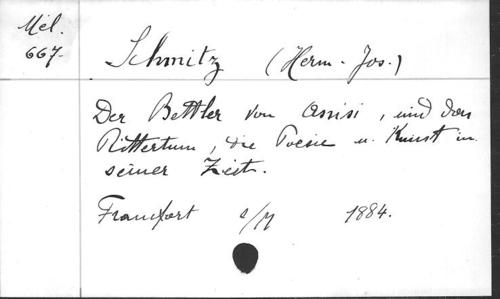 Mél.
667.
Schmitz (Herm. - Jos.)
Der Bettler von Assisi, und das
Rittertum, die Poesie u. Kunst in
seiner Zeit.
Francfort s/M 1884.